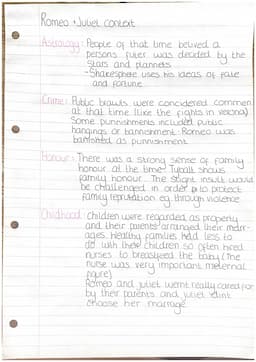 Romeo + Juliet context
Astrology: People of that time belived a
persons futer was decided by the
stars and plannets
- Shakespeare uses his ideas of fate
and fortune
Crime: Public brawls were concidered common
at that time (like the fights in verona)
Some punnishments included public
hangings or bannishment. Romeo was
bannished as punnishment
Honour: There was a strong sense of family
honour at the time. Tybalt shows
family honour. The slight insult would
be challenged in order to protect
family reputation eg through violence
Childhood: Children were regarded as property
and their parents arranged their marr-
ages. Wealthy families had less to
do with there children so often hired
nurses to breastfeed the baby (the
nurse was very important meternal
figure)
Romeo and juliet wernt really cared for
by their parents and juliet didnt
choose her marrage